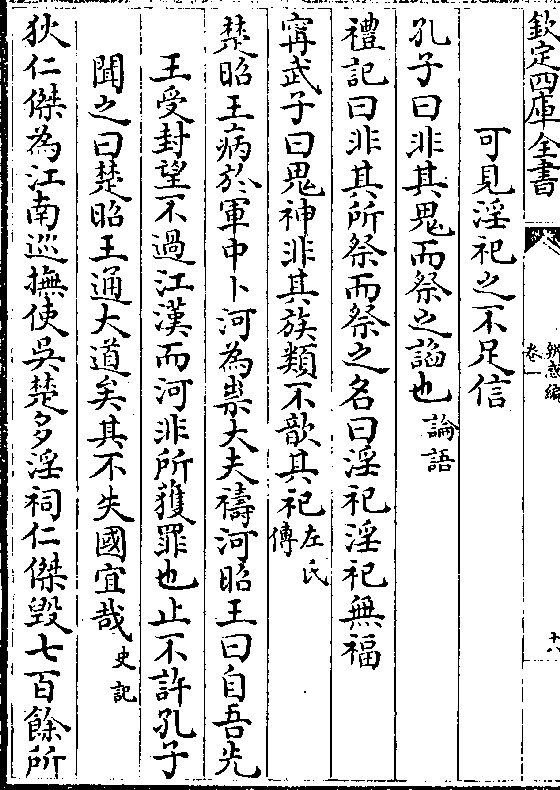 欽定四庫全書
辨惑編
卷一
十八
可見淫祀之不足信
孔子曰非其鬼而祭之諂也論語
禮記曰非其所祭而祭之名曰淫祀淫祀無福
甯武子曰鬼神非其族類不歆其祀左氏傳
楚昭王病於軍中卜河為祟大夫禱河昭王曰自吾先
王受封望不過江漢而河非所獲罪也止不許孔子
聞之曰楚昭王通大道矣其不失國宜哉史記
狄仁傑為江南巡撫使吳楚多淫祠仁傑毀七百餘所